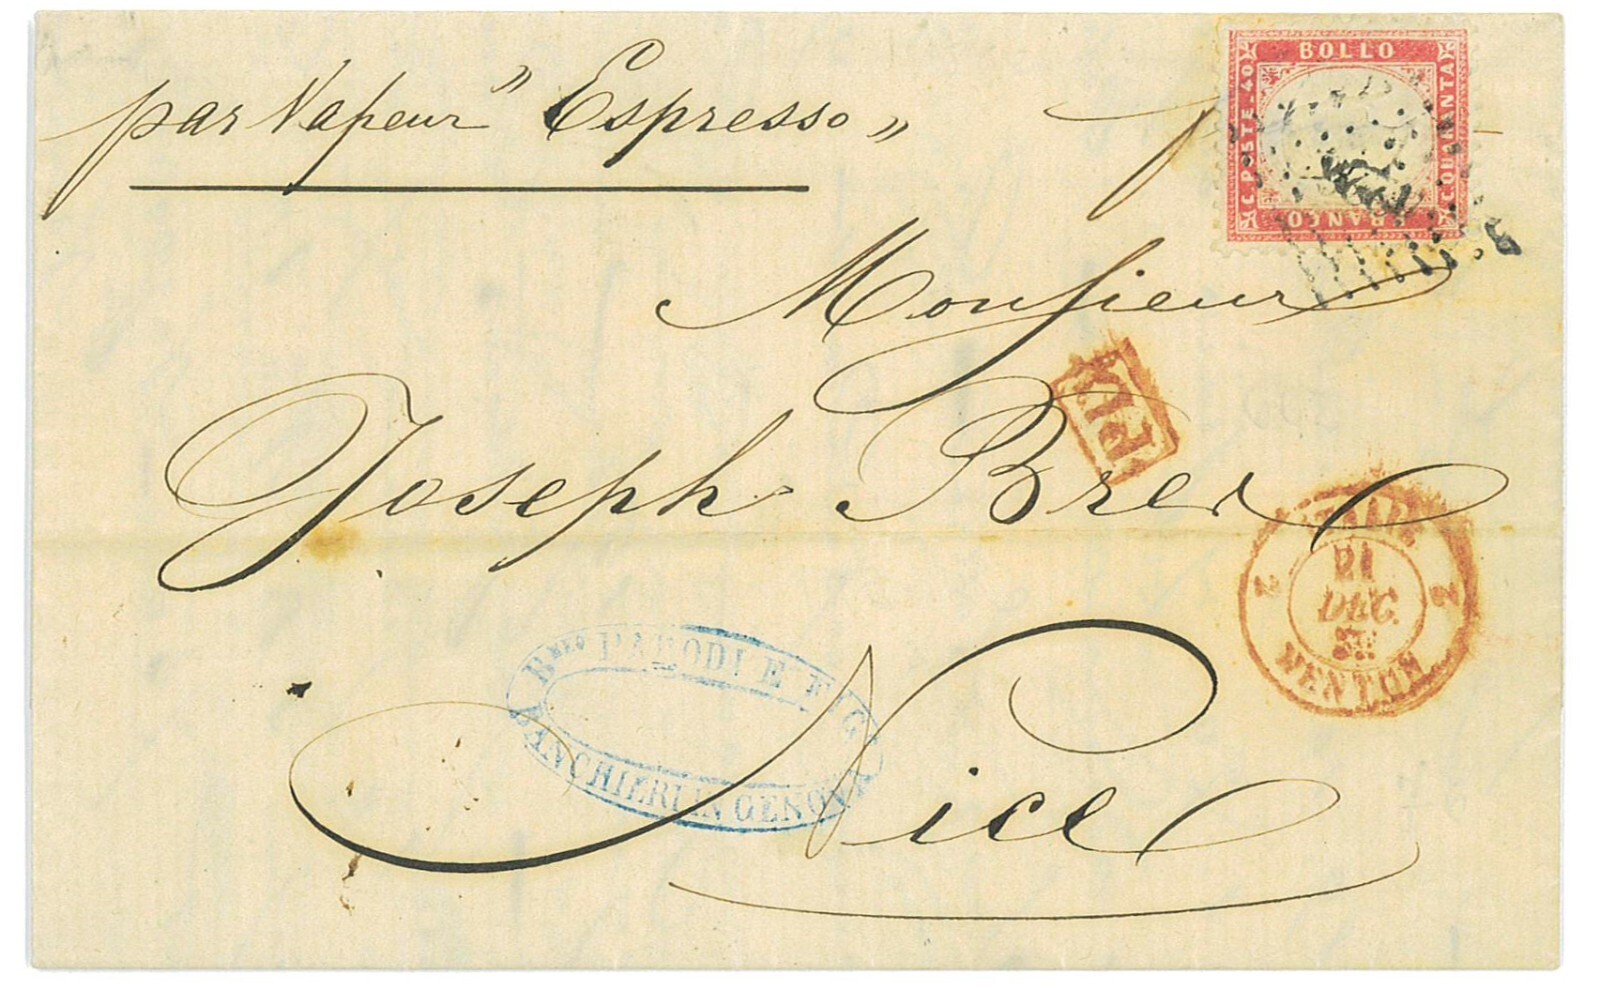 par Vapeur " Espresso "
BOLLO
C. POSTE. 40
C. QUARANTA
FRANCO
Monsieur
P.D.
Joseph Bres
Nice
2 2
21
DEC.
MENTON
Bmeo PARODI E FIG
BANCHIERI IN GENOVA